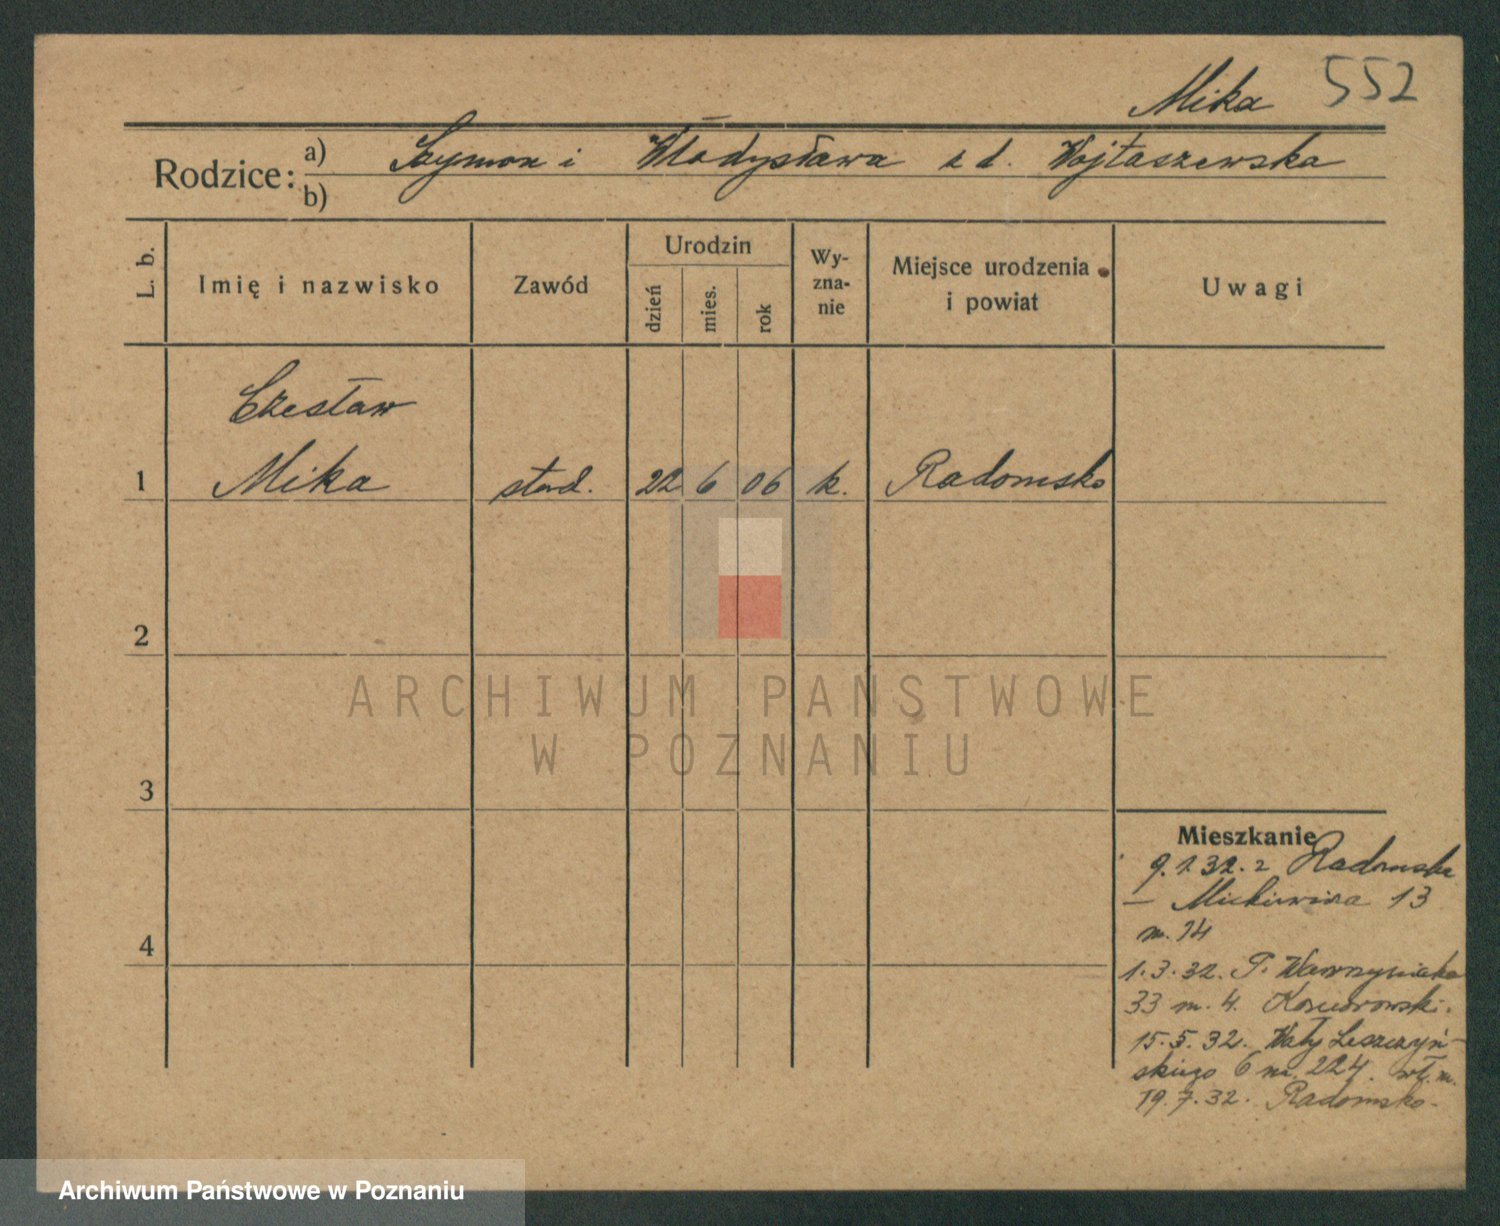 Mika 552
Rodzice: a) Szymon i Władysława z d. Wojtaszewska
b)
L. b.
Imię i nazwisko
Zawód
Urodzin
dzień
mies.
rok
Wy-
zna-
nie
Miejsce urodzenia
i powiat
Uwagi
Czesław
1 Mika stud. 22 6 06 k. Radomsko
2
3
4
ARCHIWUM PAŃSTWOWE
W POZNANIU
Mieszkanie
9.1.32. z Radomska
– Mickiewicza 13
m. 14
1.3.32. P. Wawrzyniaka
33 m. 4.
15.5.32. Wały Leszczyń-
skiego 6 m. 224. wł. m.
19.7.32. Radomsko.
Archiwum Państwowe w Poznaniu